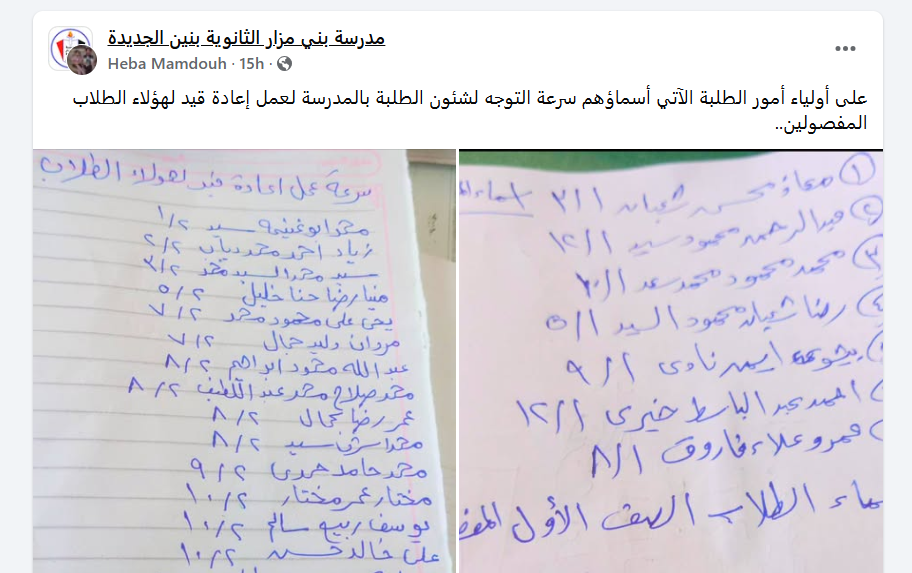 مدرسة بني مزار الثانوية بنين الجديدة
Heba Mamdouh · 15h ·
على أولياء أمور الطلبة الآتي أسماؤهم سرعة التوجه لشئون الطلبة بالمدرسة لعمل إعادة قيد لهؤلاء الطلاب
المفصولين..
سرعة عمل اعادة قيد لهولاء الطلاب
محمد ابوغنيمه سيد ١/٢
زياد احمد محمد دياب ٢/٢
سيد محمد السيد محمد ٣/٢
مينا رضا حنا خليل ٥/٢
يحى على محمود محمد ٧/٢
مروان وليد جمال ٧/٢
عبد الله محمود ابراهيم ٨/٢
محمد صلاح محمد عبد اللطيف ٨/٢
عمر رضا جمال ٨/٢
محمد اشرف سيد ٨/٢
محمد حامد حمدى ٩/٢
مختار عمر مختار ١٠/٢
يوسف ربيع سالم ١٠/٢
على خالد حسن ١٠/٢
① معاذ محسن شعبان ٣/١
② عبد الرحمن محمود سيد ١٢/١
③ محمد محمود محمد سعد
رضا شعبان محمود السيد ٥/١
ايمن نادى ٩/١
احمد عبد الباسط خيرى ١٢/١
عمرو علاء فاروق ٨/١
الطلاب الصف الأول